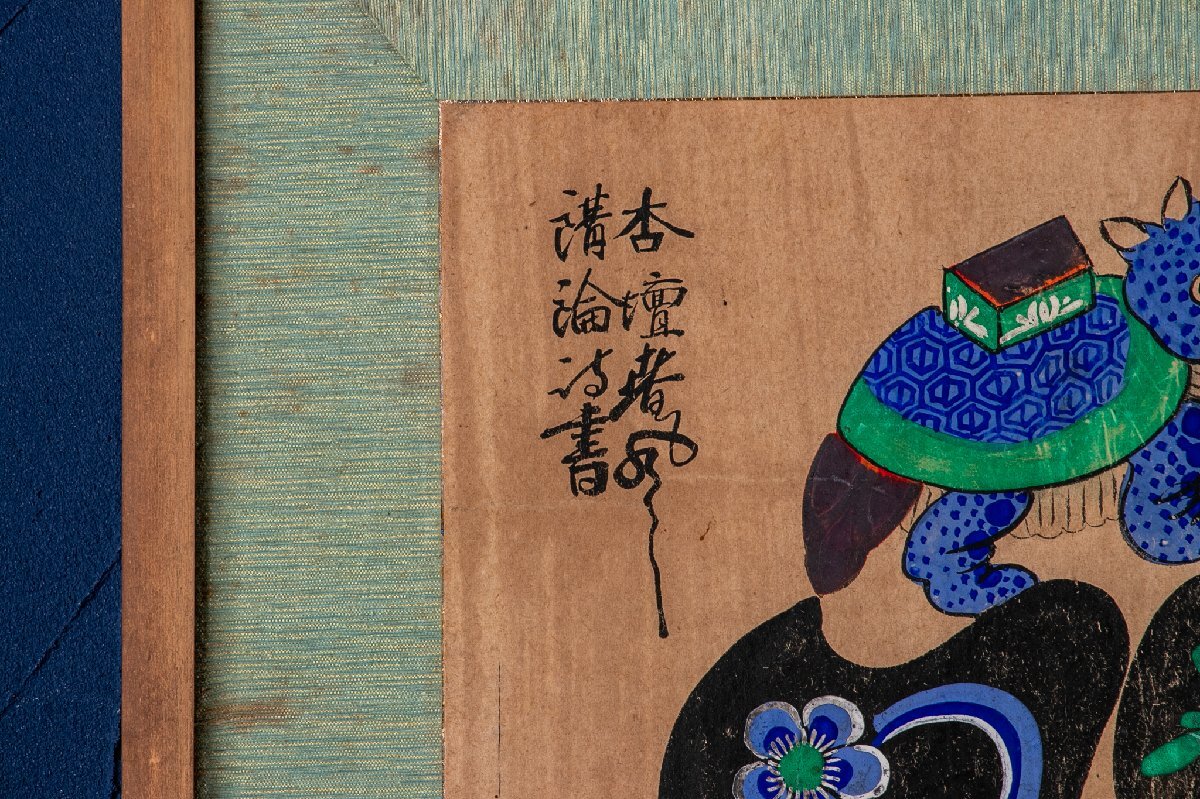 杏壇春風
講論詩書